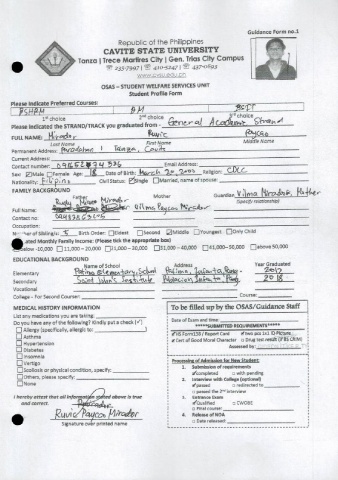 Guidance Form no.1
Republic of the Philippines
CAVITE STATE UNIVERSITY
Tanza | Trece Martires City | Gen. Trias City Campus
www.cvsu.edu.ph
OSAS – STUDENT WELFARE SERVICES UNIT
Student Profile Form
Please Indicate Preferred Courses:
BSHRM BM BSIT
1st choice 2nd choice 3rd choice
Please indicated the STRAND/TRACK you graduated from - General Academic Strand
FULL NAME: Mirador Ruvic Paycao
Last Name First Name Middle Name
Permanent Address: Tanza, Cavite
Current Address:
Contact number: Email Address:
Sex: Male Female Age: 18 Date of Birth: March 20 2000 Religion: CDCC
Nationality: Filipino Civil Status: Single Married, name of spouse
FAMILY BACKGROUND
Father Mother Guardian: Vilma Mirador, Mother
Full Name: Mirador Vilma Paycao Mirador (Specify relationship)
Contact no:
Occupation:
Number of Siblings: 5 Birth Order: Eldest Second Middle Youngest Only Child
Estimated Monthly Family Income: (Please tick the appropriate box)
Below -10,000 11,000 - 20,000 21,000 – 30,000 31,000 – 40,000 41,000 –50,000 above 50,000
EDUCATIONAL BACKGROUND
Name of School Address Year Graduated
Elementary Elementary School 2012
Secondary Institute 2018
Vocational
College - For Second Course: Course:
MEDICAL HISTORY INFORMATION
List any medications you are taking:
Do you have any of the following? Kindly put a check (✓)
Allergy (specifically, allergic to:
Asthma
Hypertension
Diabetes
Insomnia
Vertigo
Scoliosis or physical condition, specify:
Others, please specify:
None
I hereby attest that all information stated above is true
and correct.
Ruvic Paycao Mirador
Signature over printed name
To be filled up by the OSAS/Guidance Staff
Date of Exam and time:
*****SUBMITTED REQUIREMENTS*****
Form138 / Report Card two pcs 1x1 Picture
Cert of Good Moral Character Drug test result (if BS CRIM)
Assessed by:
Processing of Admission for New Student:
1. Submission of requirements
completed with pending
2. Interview with College (optional)
passed redirected to
passed the 2nd interview
3. Entrance Exam
Qualified CWOBE
Final course:
4. Release of NOA
Date released: